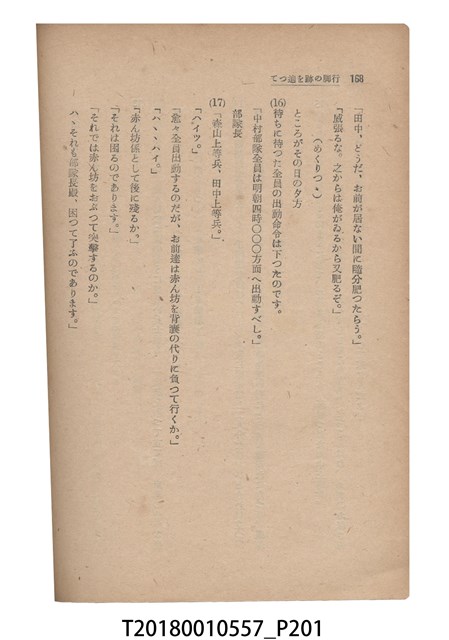 168 行脚の跡を追つて
「田中、どうだ、お前が居ない間に隨分肥つたらう。」
「威張るな。之からは俺がゐるから又肥るぞ。」
（めくりつゝ）
ところがその日の夕方
(16)
待ちに待つた全員の出動命令は下つたのです。
「中村部隊全員は明朝四時〇〇〇方面へ出動すべし。」
部隊長
(17)
「森山上等兵、田中上等兵。」
「ヘイツ。」
「愈々全員出動するのだが、お前達は赤ん坊を背嚢の代りに負つて行くか。」
「ハヽヽハイ。」
「赤ん坊係として後に殘るか。」
「それは困るのであります。」
「それでは赤ん坊をおぶつて突擊するのか。」
「ハヽそれも部隊長殿、困つて了ふのであります。」
T20180010557_P201